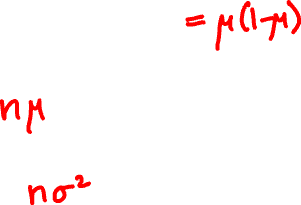 = μ(1-μ)
nμ
nσ²